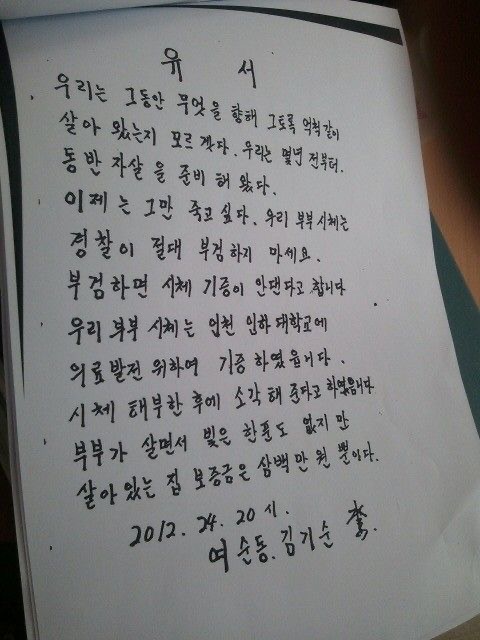 유 서
우리는 그동안 무엇을 향해 그토록 억척같이
살아 왔는지 모르겟다. 우리는 몇년 전부터.
동반 자살을 준비 해 왔다.
이제는 그만 죽고 싶다. 우리 부부 시체는
경찰이 절대 부검하지 마세요.
부검하면 시체 기증이 안댄다고 합니다
우리 부부 시체는 인천 인하 대학교에
의료발전 위하여 기증 하였읍니다.
시체 해부한 후에 소각 해 준다고 하였읍니다
부부가 살면서 빚은 한푼도 없지만
살아있는 집 보증금은 삼백 만 원 뿐이다.
2012. 24. 20 시.
여 순동. 김기순